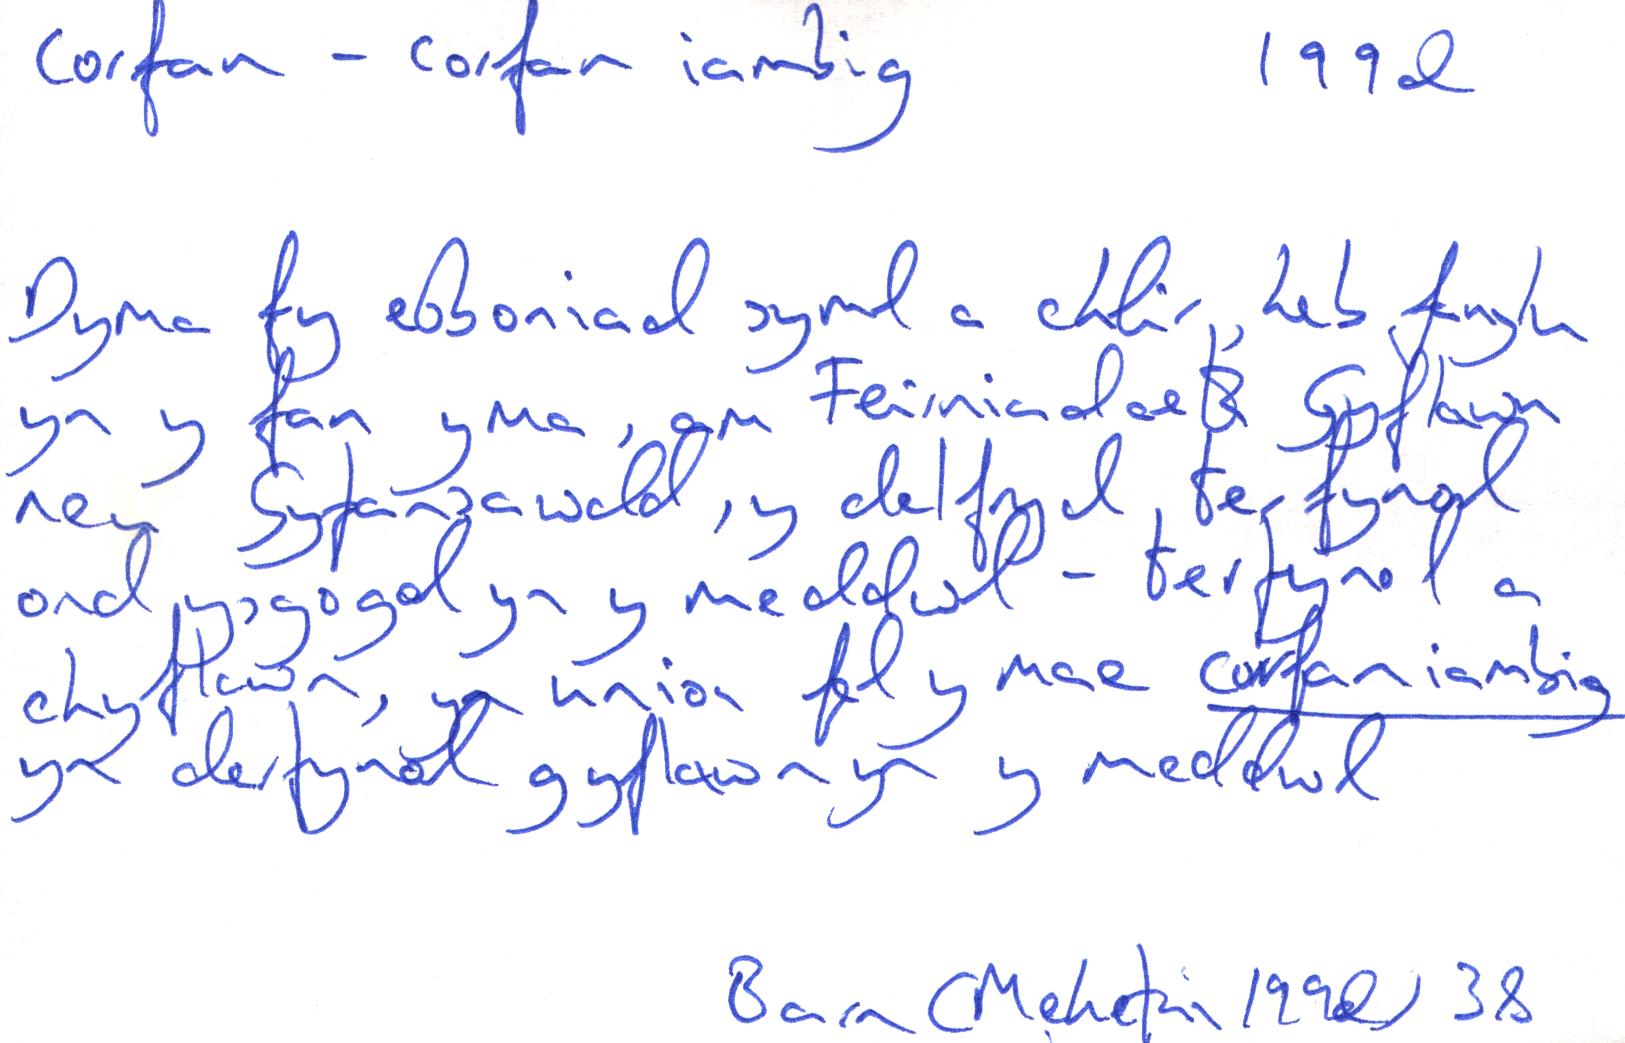 corfan - corfan iambig 1992
Dyma fy esboniad syml a chlir, heb fanylu
yn y fan yma, am Feirniadaeth Gyflawn
neu Gyfansawdd, y delfryd, terfynol
ond ysgogol yn y meddwl - terfynol a
chyflawn, yn union fel y mae corfan iambig
yn derfynol gyflawn yn y meddwl
Barn (Mehefin 1992) 38